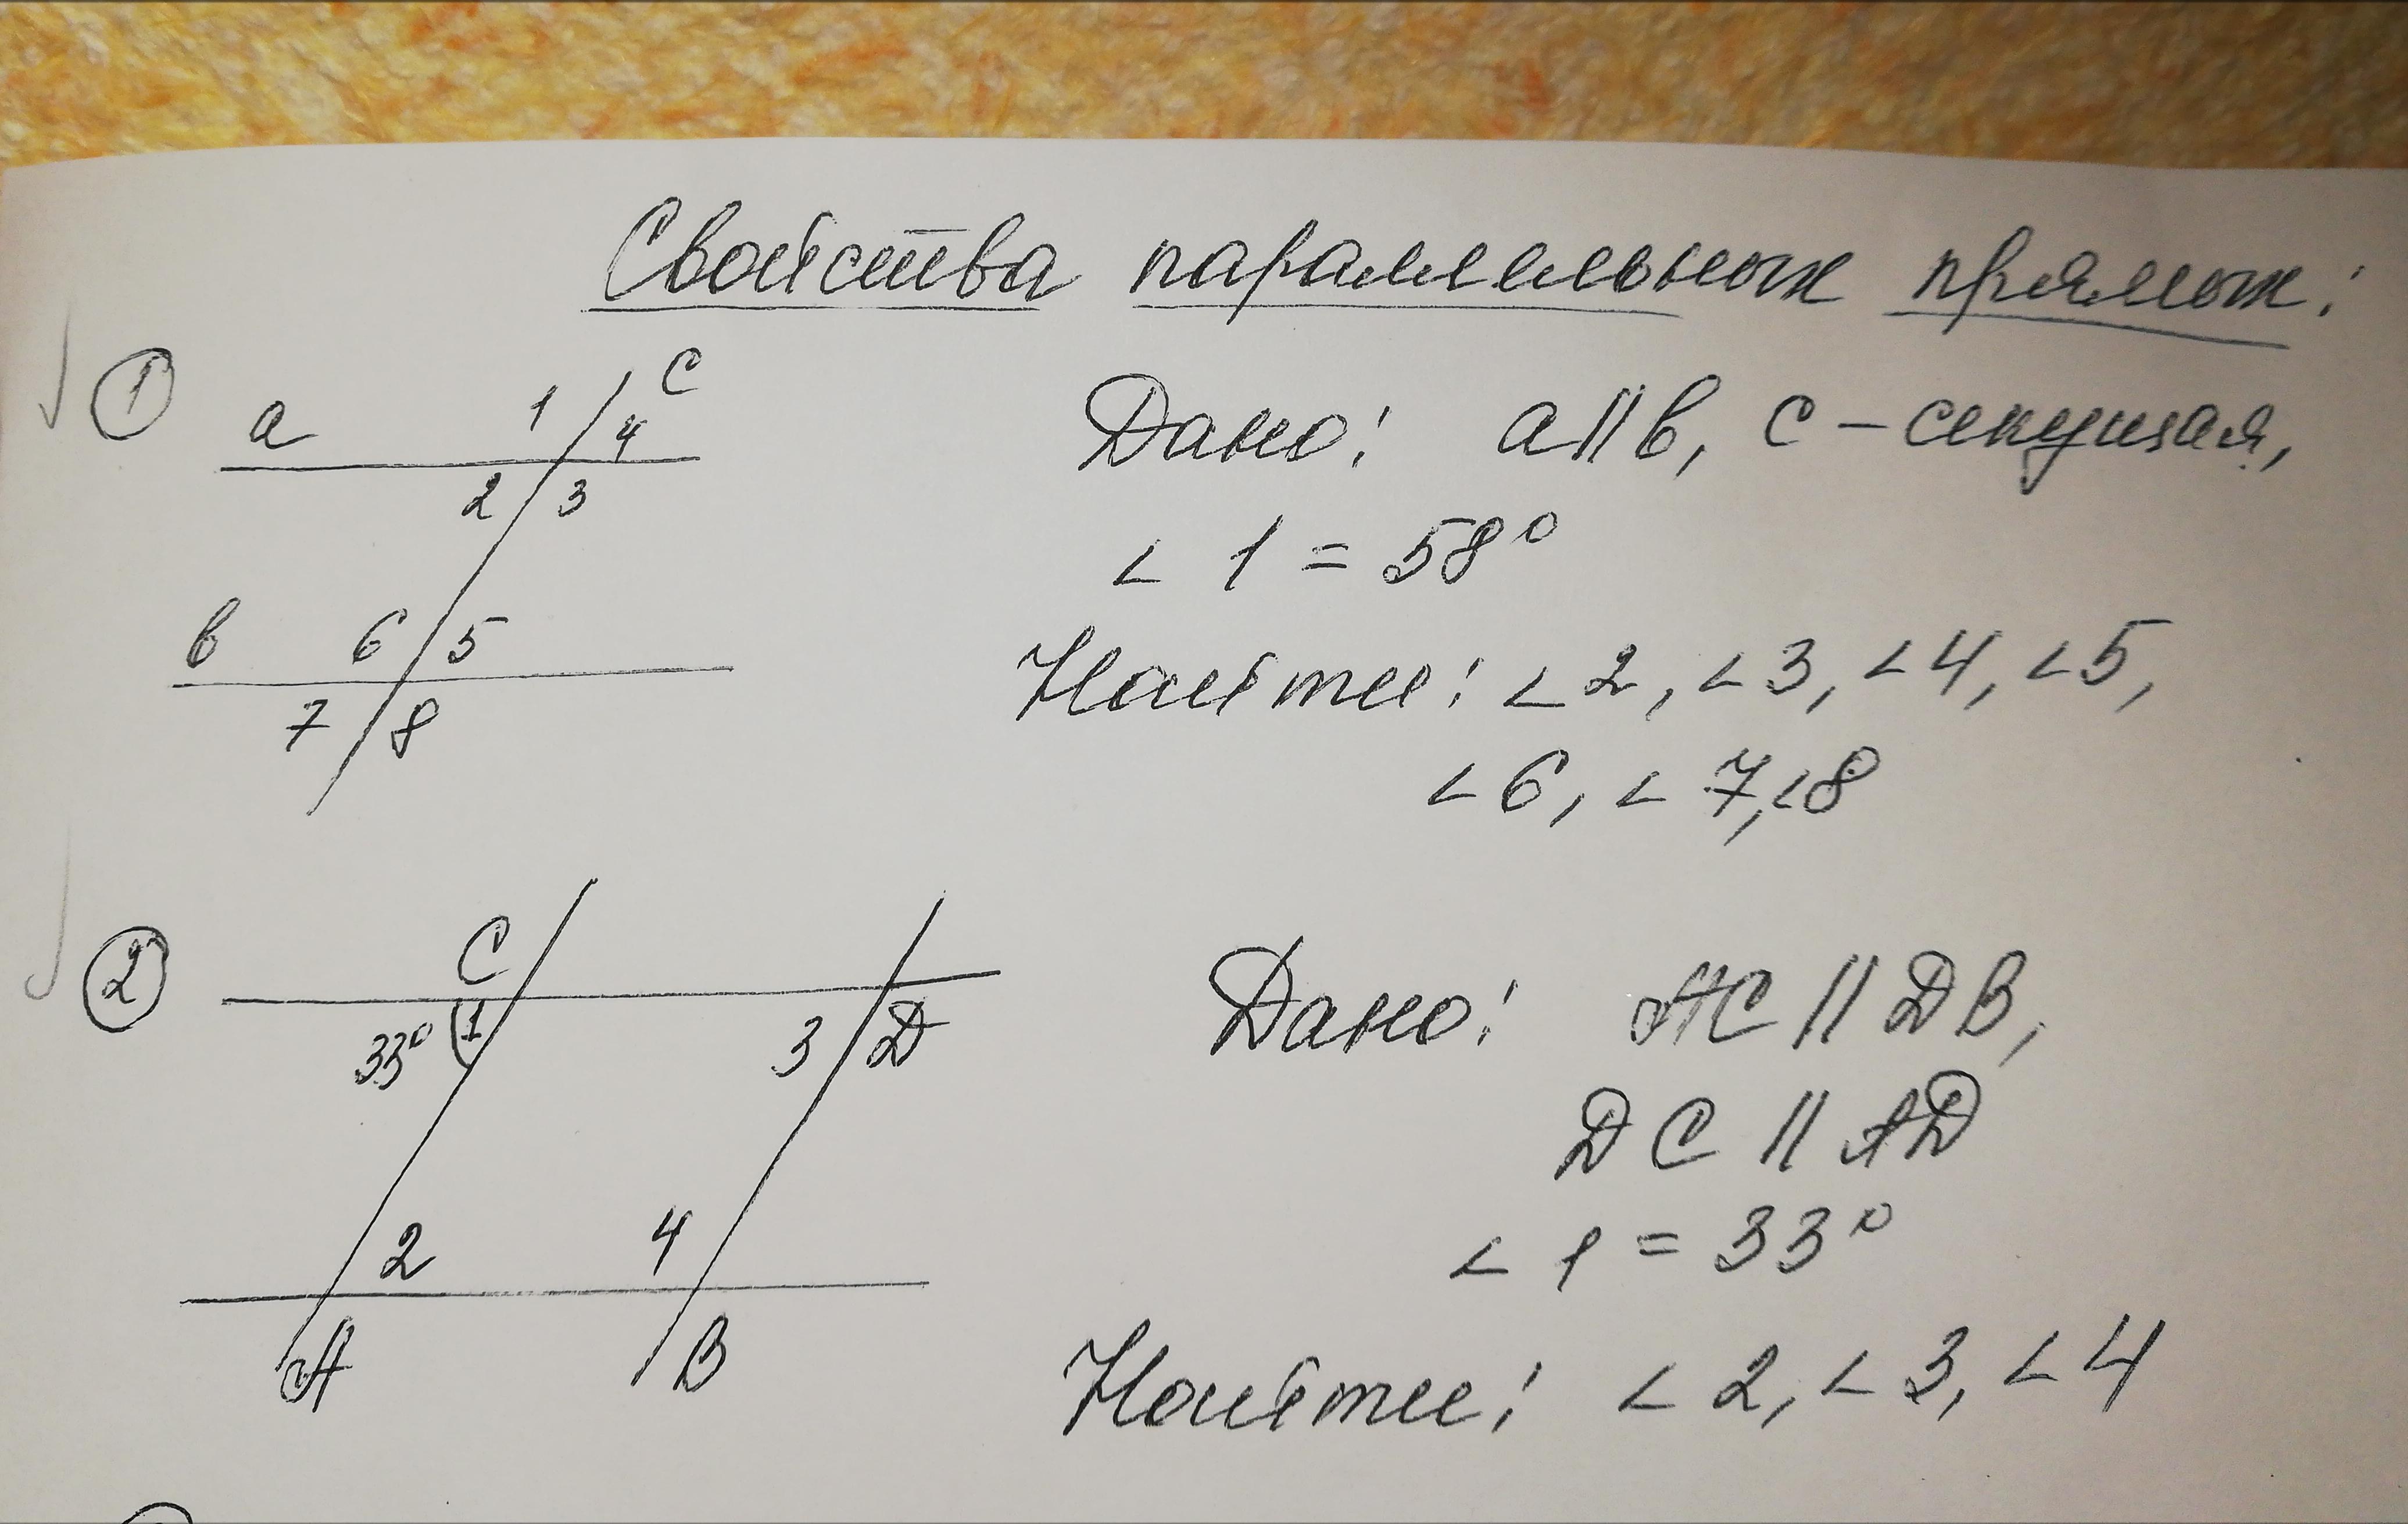 Свойства параллельных прямых:
1
a 1 c
4
2 3
в 6 5
7 8
Дано: a||в, c – секущая,
∠ 1 = 58°
Найти: ∠2, ∠3, ∠4, ∠5,
∠6, ∠7, ∠8
2
C
33° 1 3 D
2 4
A B
Дано: AC || DB,
DC || AD
∠ 1 = 33°
Найти: ∠ 2, ∠ 3, ∠ 4